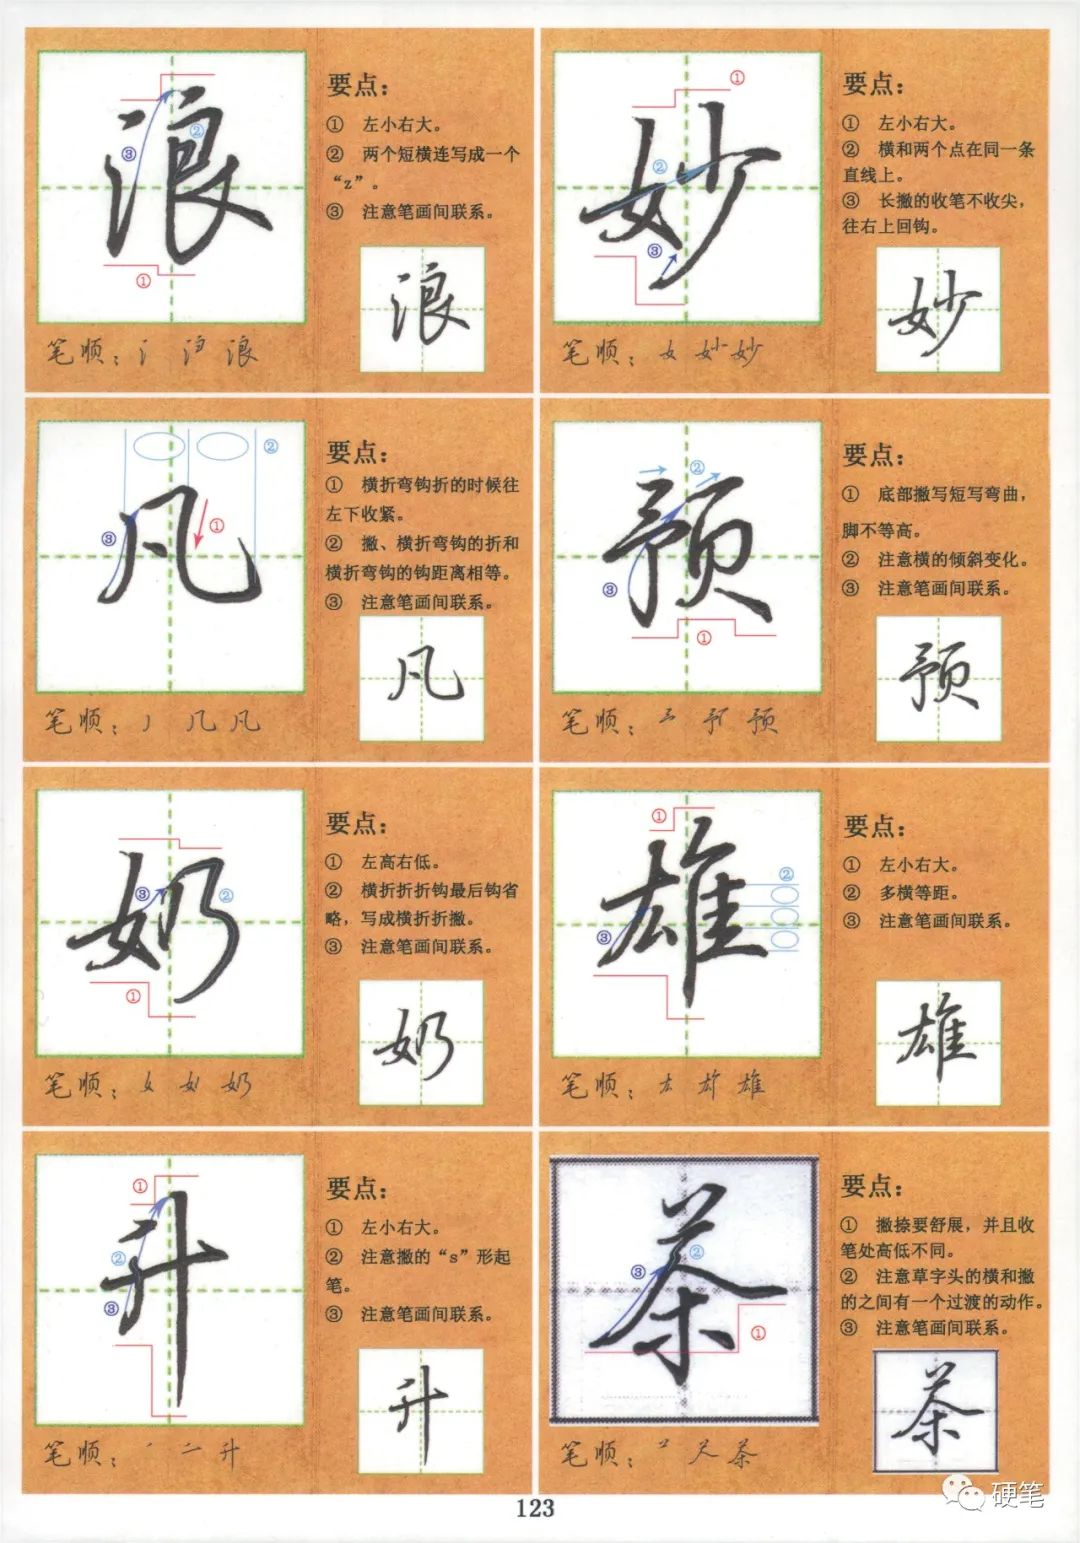 浪
要点：
① 左小右大。
② 两个短横连写成一个
“z”。
③ 注意笔画间联系。
浪
笔顺：氵 浪
妙
要点：
① 左小右大。
② 横和两个点在同一条
直线上。
③ 长撇的收笔不收尖，
往右上回钩。
妙
笔顺：女 妙 妙
凡
要点：
① 横折弯钩折的时候往
左下收紧。
② 撇、横折弯钩的折和
横折弯钩的钩距离相等。
③ 注意笔画间联系。
凡
笔顺：丿 几 凡
预
要点：
① 底部撇写短写弯曲，
脚不等高。
② 注意横的倾斜变化。
③ 注意笔画间联系。
预
笔顺：预
奶
要点：
① 左高右低。
② 横折折折钩最后钩省
略，写成横折折撇。
③ 注意笔画间联系。
奶
笔顺：女 奶
雄
要点：
① 左小右大。
② 多横等距。
③ 注意笔画间联系。
雄
笔顺：雄
升
要点：
① 左小右大。
② 注意撇的“s”形起
笔。
③ 注意笔画间联系。
升
笔顺：升
茶
要点：
① 撇捺要舒展，并且收
笔处高低不同。
② 注意草字头的横和撇
的之间有一个过渡的动作。
③ 注意笔画间联系。
茶
笔顺：茶
123
硬笔